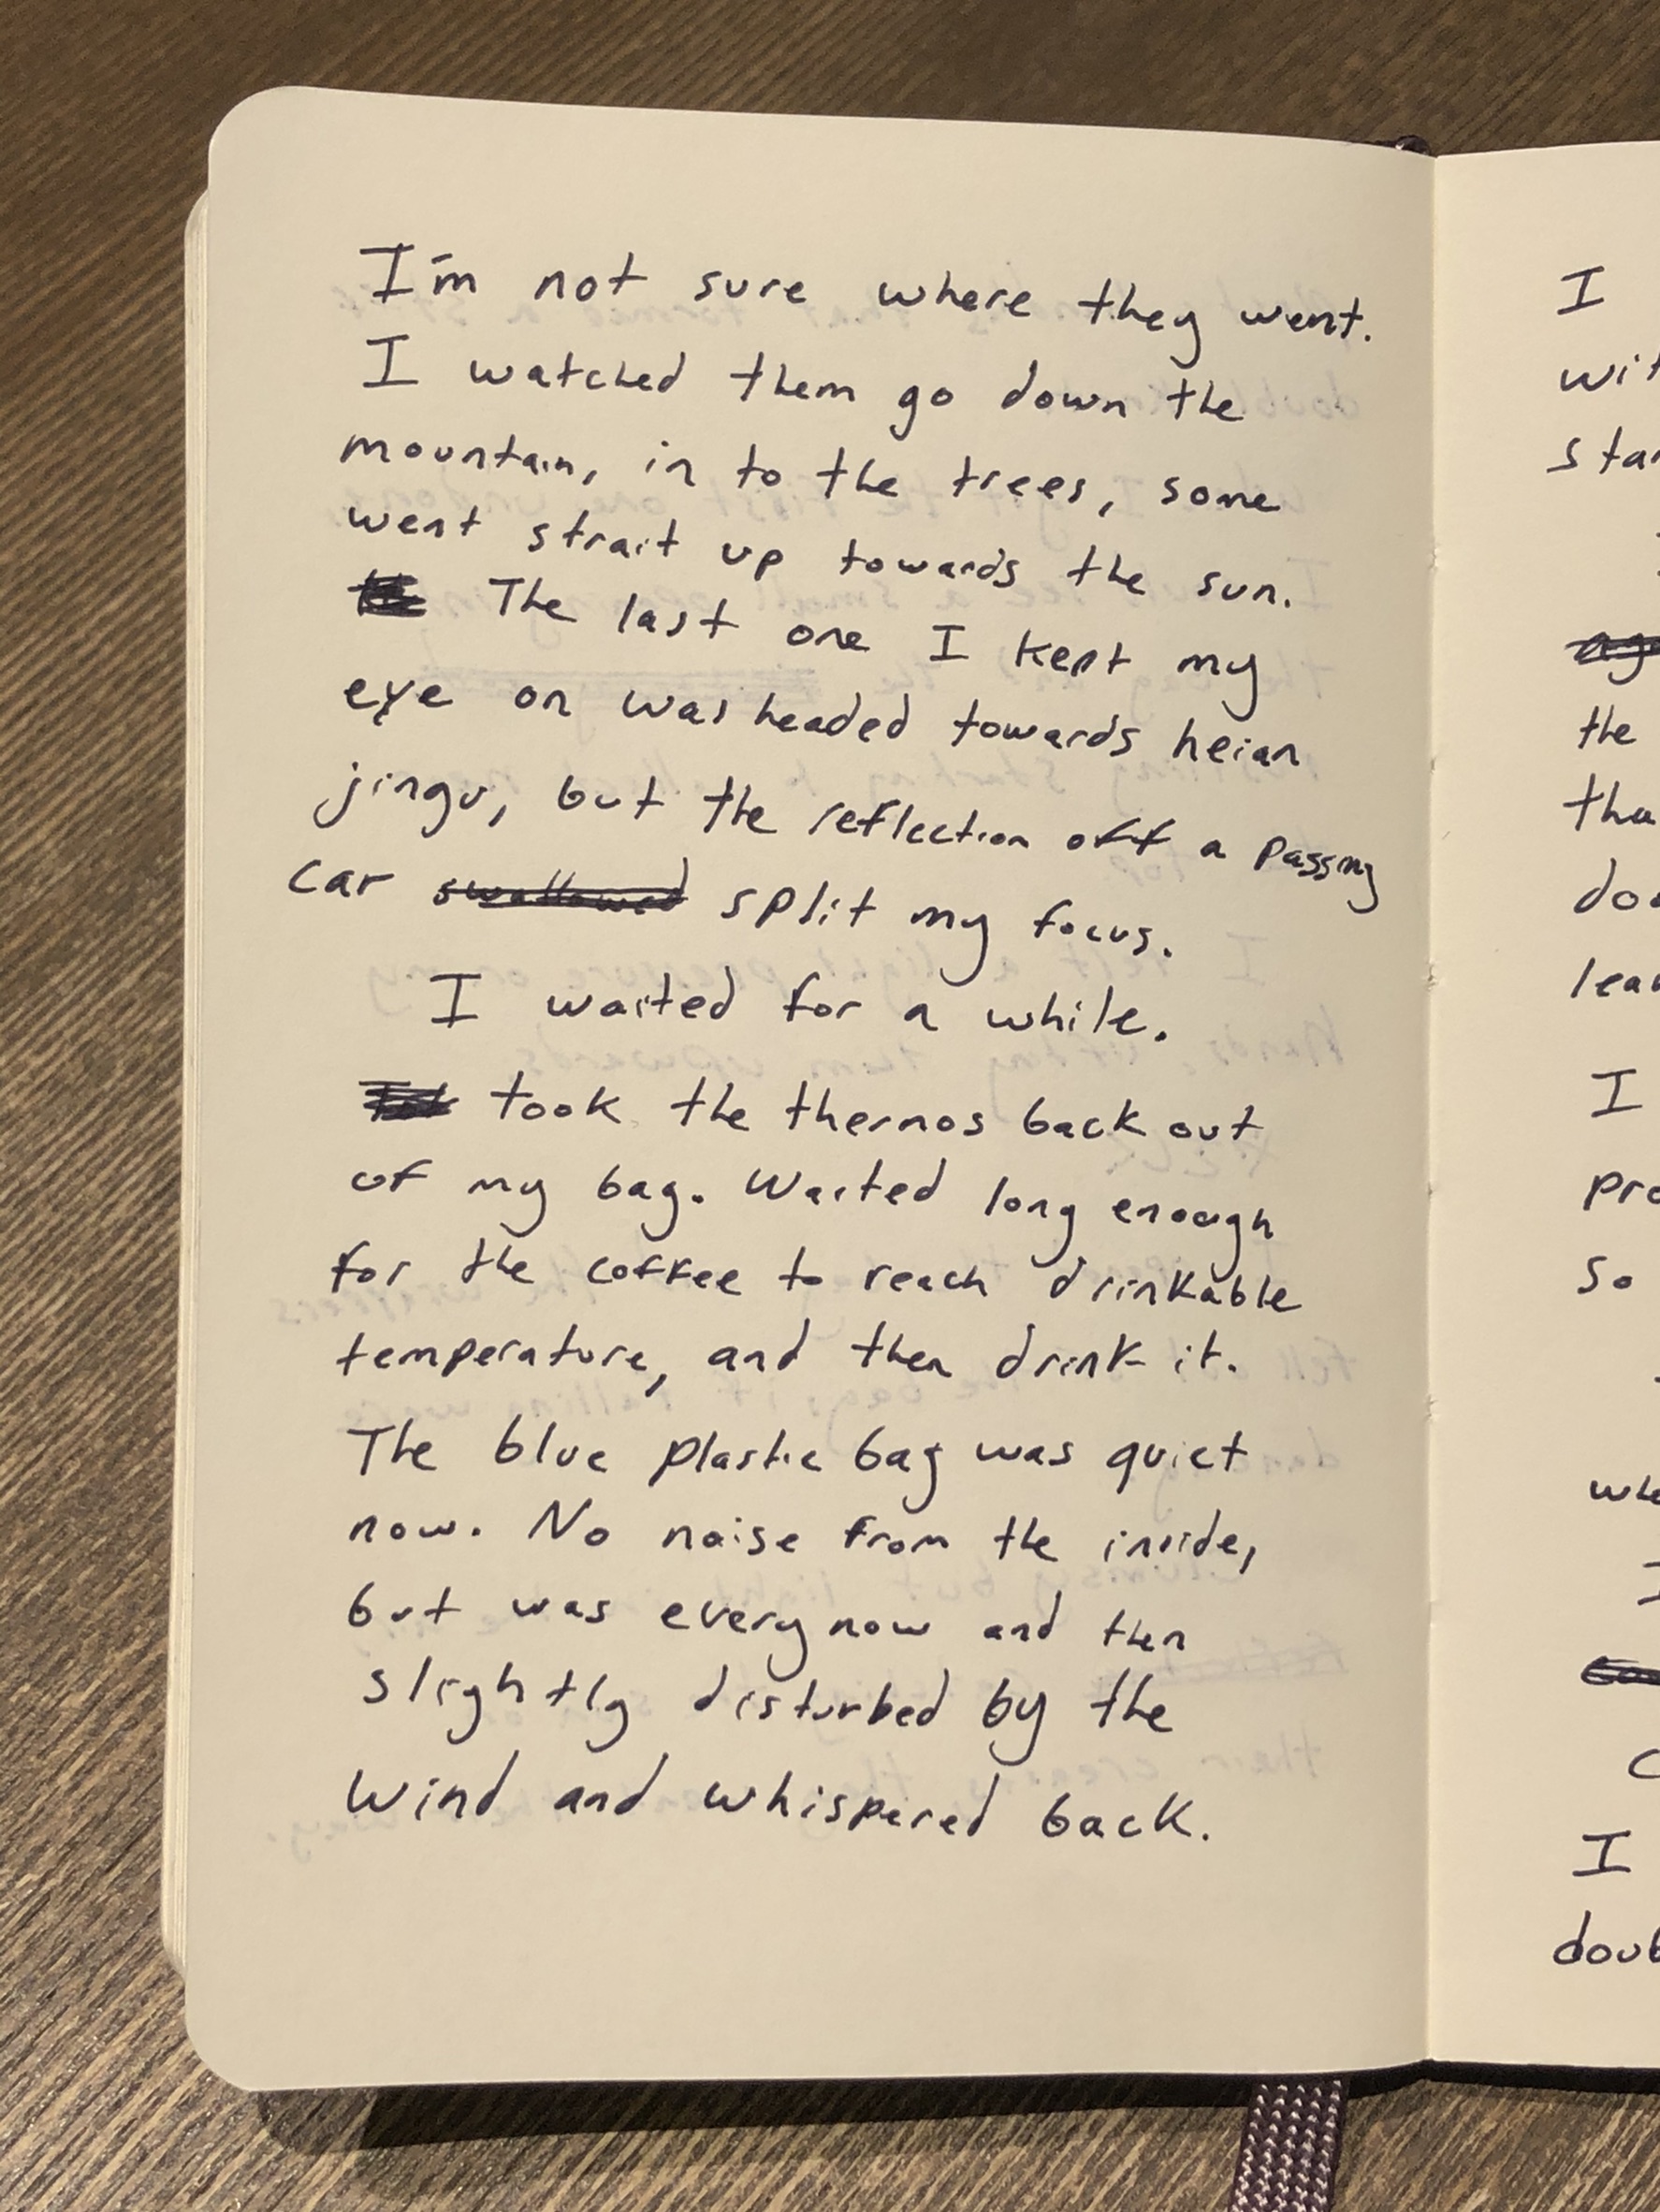 I'm not sure where they went.
I watched them go down the
mountain, in to the trees, some
went strait up towards the sun.
The last one I kept my
eye on was headed towards heian
jingu, but the reflection off a passing
car swallowed split my focus.
I waited for a while.
took the thermos back out
of my bag. Waited long enough
for the coffee to reach drinkable
temperature, and then drink it.
The blue plastic bag was quiet
now. No noise from the inside,
but was every now and then
slightly disturbed by the
wind and whispered back.
I
wit
star
the
tha
doo
lea
I
pro
so
whe
I
C
I
doub